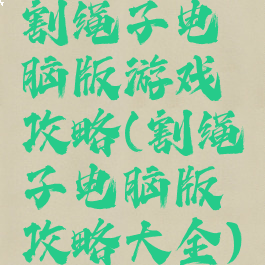 割绳子电
脑版游戏
攻略(割绳
子电脑版
攻略大全)